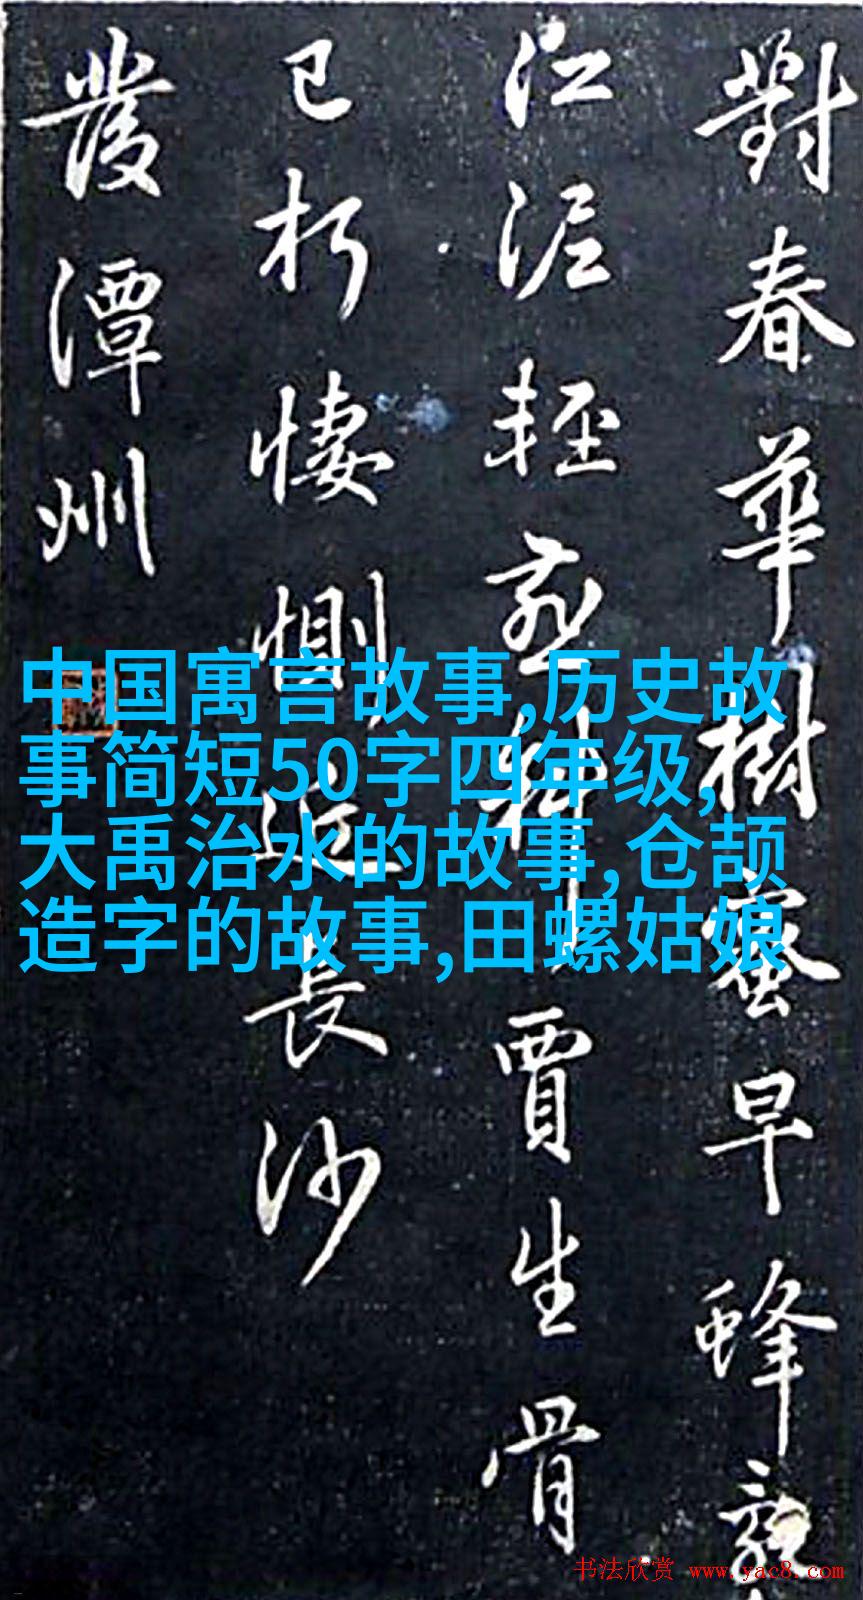 對春華樹蜜早蜂亂
江泥輕燕斜賈生骨
已朽悽惻近長沙
發潭州
中国寓言故事,历史故
事简短50字四年级,
大禹治水的故事,仓颉
造字的故事,田螺姑娘
书法欣赏 www.yac8.com